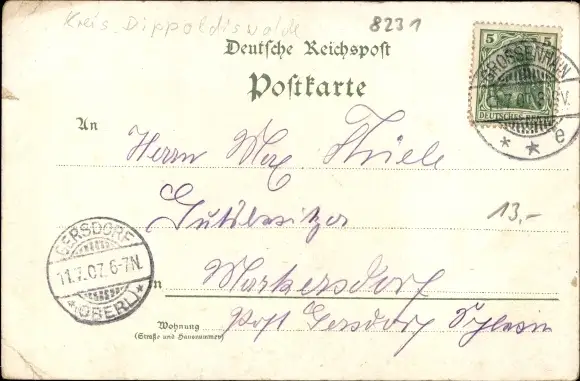 Kreis Dippoldiswalde
8231
Deutsche Reichspost
Postkarte
5 5
DEUTSCHES REICH
GROSSENHAIN
V.
* * e
An
Herrn Max Thiele
Gutsbesitzer
13,-
GERSDORF
11.7.07.6-7N
* (OBERL) *
in Markersdorf
Wohnung
(Straße und Hausnummer)
Post Gersdorf